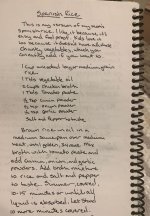 Spanish Rice
This is my version of my mom's
Spanish rice. I like it because it's
easy and fool proof. Kids love it
too because it doesn't have all those
chunky vegetables, which you
can easily add if you want to.
1 cup uncooked long or medium grain
rice
1 Tbs vegetable oil
2 cups chicken broth
1 Tbs tomato paste
½ tsp cumin powder
½ tsp onion powder
¼ tsp garlic powder
Salt and Pepper to taste
Brown rice in oil in a
medium saucepan over medium
heat until golden. Shake
broth with tomato paste and
add cumin, onion and garlic
powders. Add broth mixture
to rice and salt and pepper
to taste. Simmer covered
10-15 minutes or until all
liquid is absorbed. Let stand
10 more minutes covered.